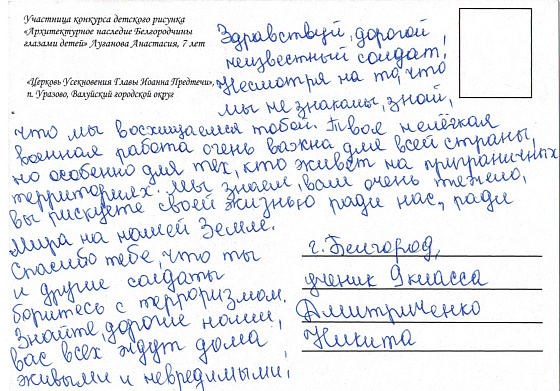 Участница конкурса детского рисунка
«Архитектурное наследие Белгородчины
глазами детей» Луганова Анастасия, 7 лет
«Церковь Усекновения Главы Иоанна Предтечи»,
п. Уразово, Валуйский городской округ
Здравствуй, дорогой
неизвестный солдат!
Несмотря на то, что
мы не знакомы, знай,
что мы восхищаемся тобой. Твоя нелёгкая
военная работа очень важна для всей страны,
но особенно для тех, кто живёт на приграничных
территориях. Мы знаем, вам очень тяжело,
вы рискуете своей жизнью ради нас, ради
Мира на нашей Земле.
Спасибо тебе, что ты
и другие солдаты
боритесь с терроризмом.
Знайте, дорогие наши,
вас всех ждут дома
живыми и невредимыми!
г. Белгород,
ученик 9 класса
Дмитриченко
Никита